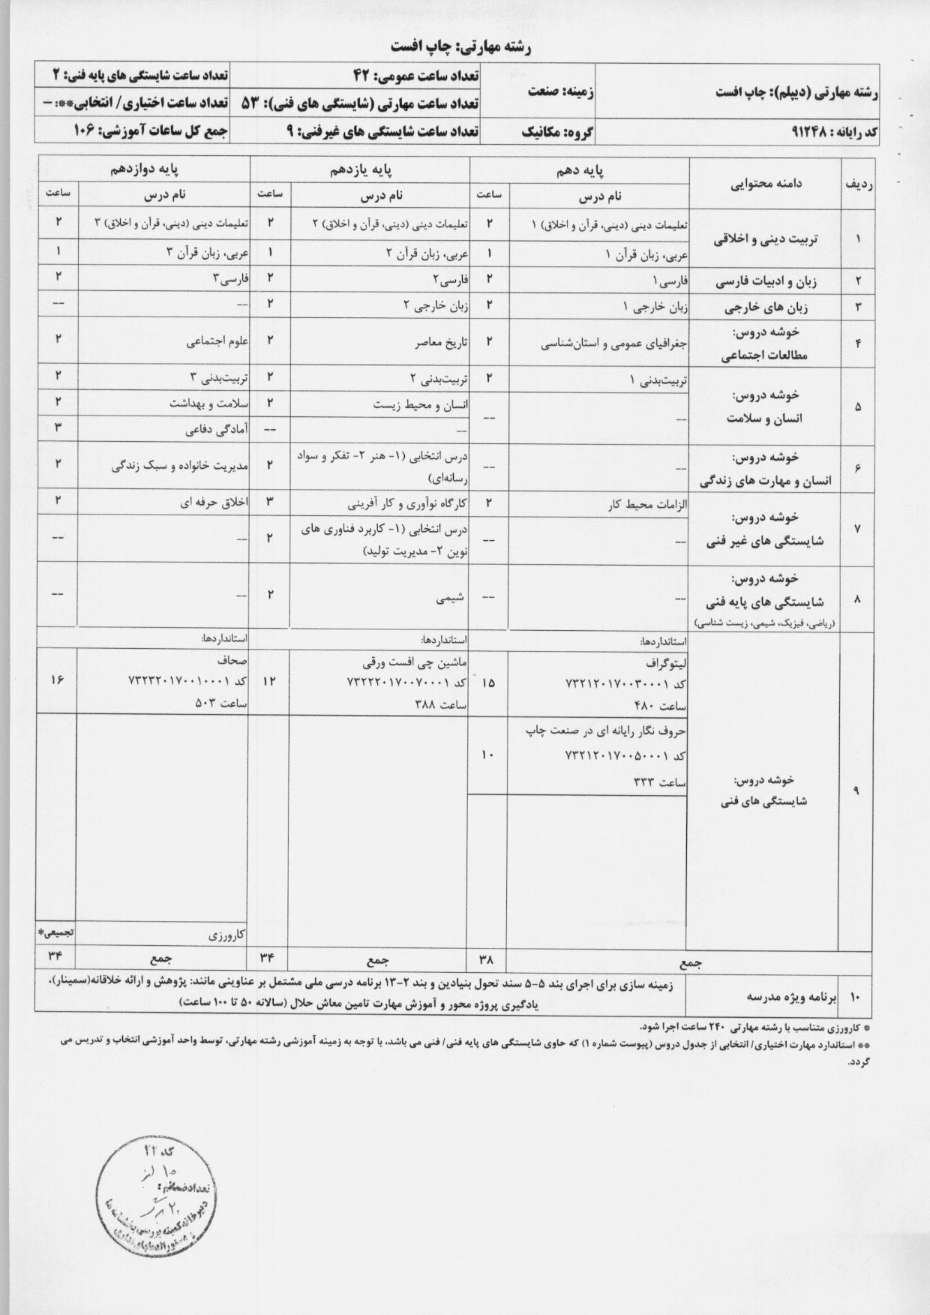 رشته مهارتی: چاپ افست
رشته مهارتی (دیپلم): چاپ افست
کد رایانه : ۹۱۲۴۸
زمینه: صنعت
گروه: مکانیک
تعداد ساعت عمومی: ۴۲
تعداد ساعت مهارتی (شایستگی های فنی): ۵۳
تعداد ساعت شایستگی های غیرفنی: ۹
تعداد ساعت شایستگی های پایه فنی: ۲
تعداد ساعت اختیاری/ انتخابی**: –
جمع کل ساعات آموزشی: ۱۰۶
ردیف دامنه محتوایی پایه دهم پایه یازدهم پایه دوازدهم
نام درس ساعت نام درس ساعت نام درس ساعت
۱ تربیت دینی و اخلاقی
تعلیمات دینی (دینی، قرآن و اخلاق) ۱ ۲ تعلیمات دینی (دینی، قرآن و اخلاق) ۲ ۲ تعلیمات دینی (دینی، قرآن و اخلاق) ۳ ۲
عربی، زبان قرآن ۱ ۱ عربی، زبان قرآن ۲ ۱ عربی، زبان قرآن ۳ ۱
۲ زبان و ادبیات فارسی فارسی۱ ۲ فارسی۲ ۲ فارسی۳ ۲
۳ زبان های خارجی زبان خارجی ۱ ۲ زبان خارجی ۲ ۲ -- --
۴ خوشه دروس:
مطالعات اجتماعی
جغرافیای عمومی و استان‌شناسی ۲ تاریخ معاصر ۲ علوم اجتماعی ۲
۵ خوشه دروس:
انسان و سلامت
تربیت‌بدنی ۱ ۲ تربیت‌بدنی ۲ ۲ تربیت‌بدنی ۳ ۲
-- -- انسان و محیط زیست ۲ سلامت و بهداشت ۲
-- -- آمادگی دفاعی ۳
۶ خوشه دروس:
انسان و مهارت های زندگی
-- -- درس انتخابی (۱- هنر ۲- تفکر و سواد
رسانه‌ای) ۲ مدیریت خانواده و سبک زندگی ۲
۷ خوشه دروس:
شایستگی های غیر فنی
الزامات محیط کار ۲ کارگاه نوآوری و کار آفرینی ۳ اخلاق حرفه ای ۲
-- -- درس انتخابی (۱- کاربرد فناوری های
نوین ۲- مدیریت تولید) ۲ -- --
۸ خوشه دروس:
شایستگی های پایه فنی
(ریاضی، فیزیک، شیمی، زیست شناسی)
-- -- شیمی ۲ -- --
۹ خوشه دروس:
شایستگی های فنی
استانداردها: استانداردها: استانداردها:
لیتوگراف
کد ۷۳۲۱۲۰۱۷۰۰۳۰۰۰۱ ۱۵
ساعت ۴۸۰
ماشین چی افست ورقی
کد ۷۳۲۲۲۰۱۷۰۰۷۰۰۰۱ ۱۲
ساعت ۳۸۸
صحاف
کد ۷۳۲۳۲۰۱۷۰۰۱۰۰۰۱ ۱۶
ساعت ۵۰۳
حروف نگار رایانه ای در صنعت چاپ
کد ۷۳۲۱۲۰۱۷۰۰۵۰۰۰۱ ۱۰
ساعت ۳۳۳
کارورزی تجمیعی*
جمع ۳۸ جمع ۳۴ جمع ۳۴
۱۰ برنامه ویژه مدرسه
زمینه سازی برای اجرای بند ۵-۵ سند تحول بنیادین و بند ۲-۱۳ برنامه درسی ملی مشتمل بر عناوینی مانند: پژوهش و ارائه خلاقانه(سمینار)،
یادگیری پروژه محور و آموزش مهارت تامین معاش حلال (سالانه ۵۰ تا ۱۰۰ ساعت)
* کارورزی متناسب با رشته مهارتی ۲۴۰ ساعت اجرا شود.
** استاندارد مهارت اختیاری/ انتخابی از جدول دروس (پیوست شماره ۱) که حاوی شایستگی های پایه فنی/ فنی می باشد، با توجه به زمینه آموزشی رشته مهارتی، توسط واحد آموزشی انتخاب و تدریس می
گردد.
کد ۲۲
تعداد ضمائم:
۲۰
دبیرخانه کمیته بررسی بخشنامه ها
و دستورالعملهای اداری